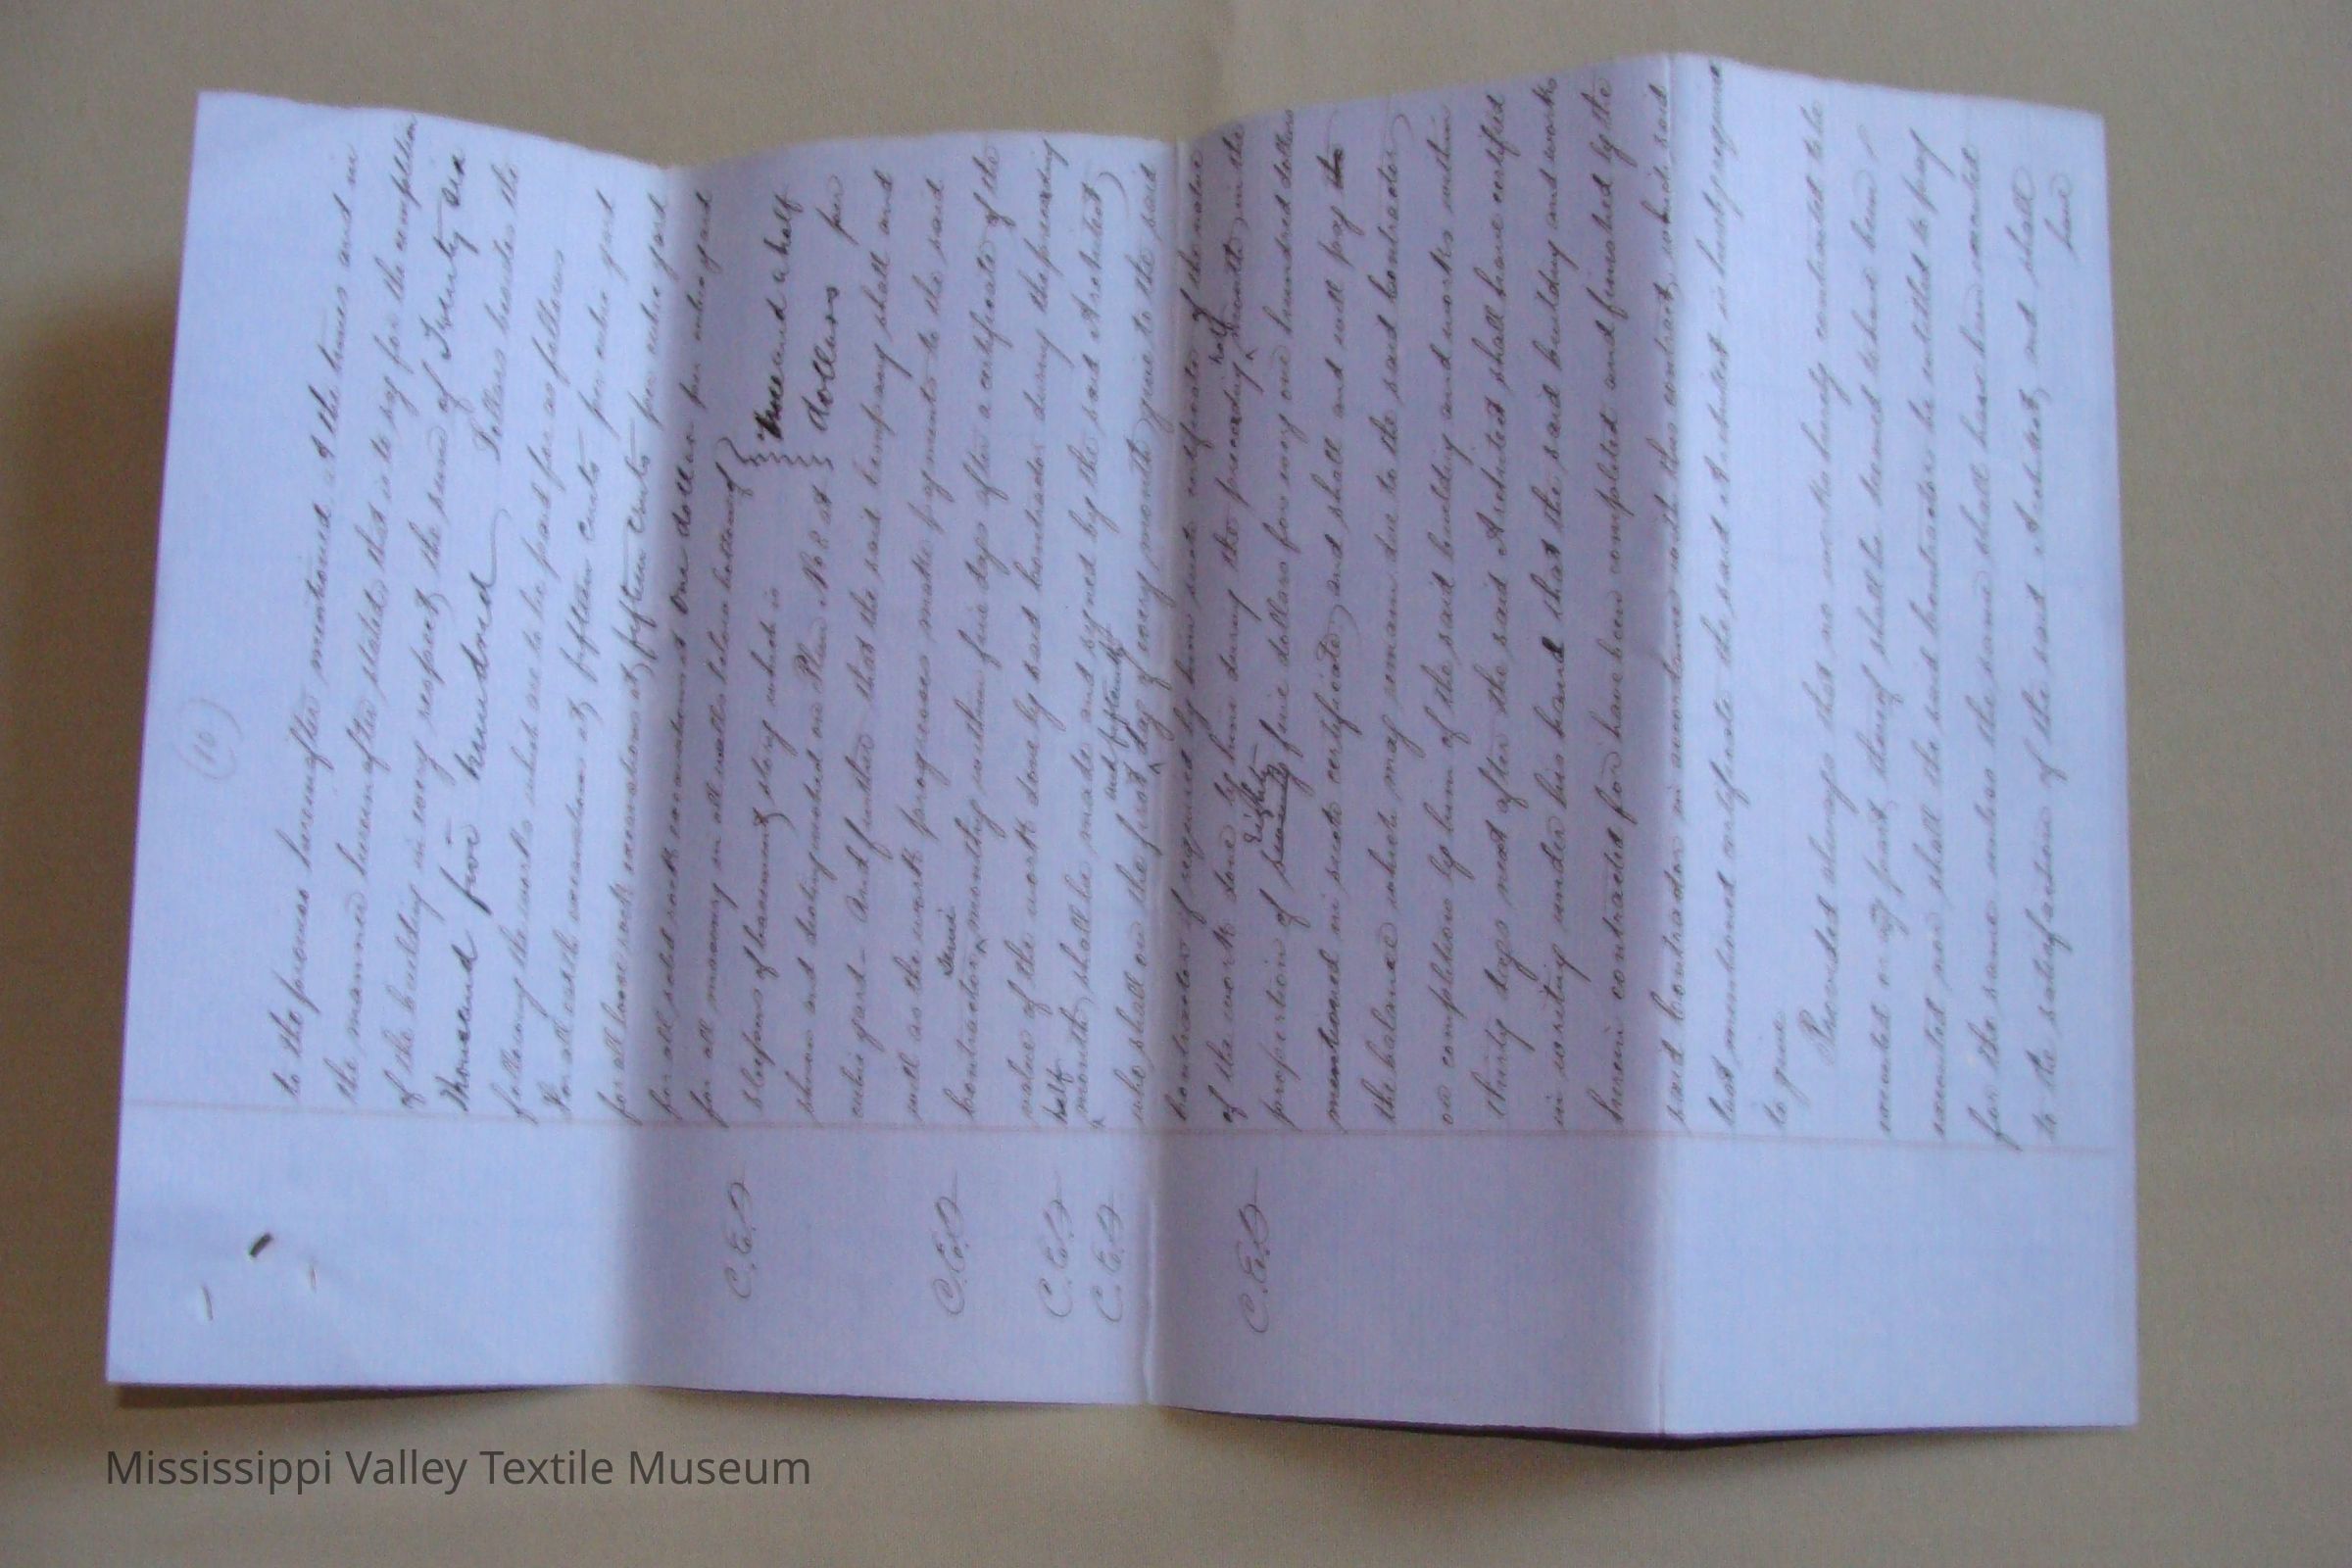 (10)
to the premises hereinafter mentioned at the times and in
the manner hereinafter stated that is to say for the completion
of the building in every respect the sum of Twenty six
thousand five hundred Dollars besides the
following the works which are to be paid for as follows
For all earth excavation at fifteen cents per cubic yard
for all loose rock excavation at fifteen cents per cubic yard
for all solid rock excavation at One dollar per cubic yard
C.E.D for all masonry in all walls below bottom of
sleepers of basement story which is Three and a half
shown and distinguished on Plan No 8 at dollars per
cubic yard - And further that the said Company shall and
will as the work progresses make payments to the said
C.E.D Contractor semi monthly within five days after a certificate of the
value of the work done by said Contractor during the preceding
C.E.D half
month shall be made and signed by the said Architect
C.E.D who shall on the first and fifteenth day of every month give to the said
Contractor if required by him such certificate of the value
of the work done by him during the preceding half month in the
C.E.D proportion of eighty five dollars for every one hundred dollars
mentioned in such certificate and shall and will pay to
the balance which may remain due to the said Contractor
on completion by him of the said building and works within
thirty days next after the said Architect shall have certified
in writing under his hand that the said building and works
herein contracted for have been completed and finished by the
said Contractor in accordance with this contract, which said
last mentioned certificate the said Architect is hereby required
to give
Provided always that no works hereby contracted to be
executed or any part thereof shall be deemed to have been
executed nor shall the said Contractor be entitled to pay
for the same unless the same shall have been executed
to the satisfaction of the said Architect, and shall
Mississippi Valley Textile Museum